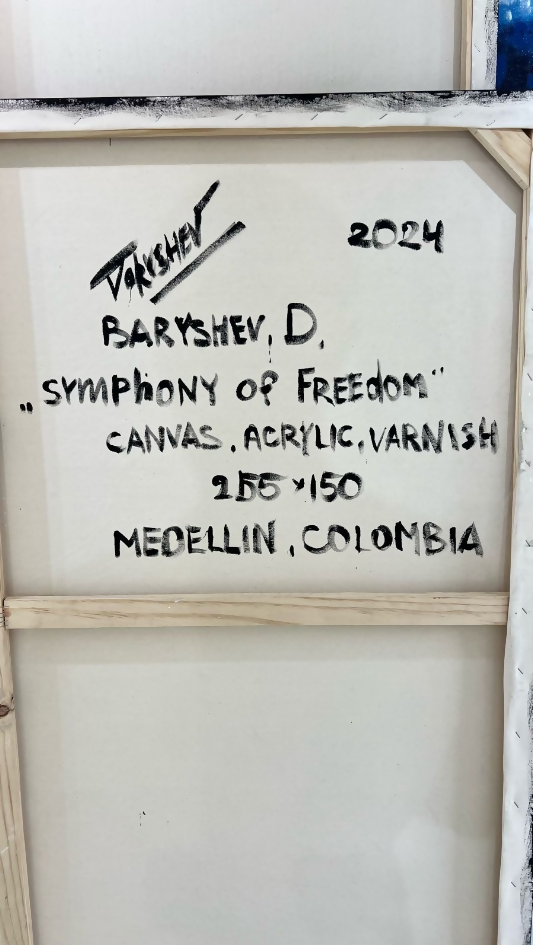 Baryshev
2024
BARYSHEV, D.
„SYMPhONY Of FREEdOM“
CANVAS, ACRYLIC, VARNISH
255×150
MEDELLIN, COLOMBIA